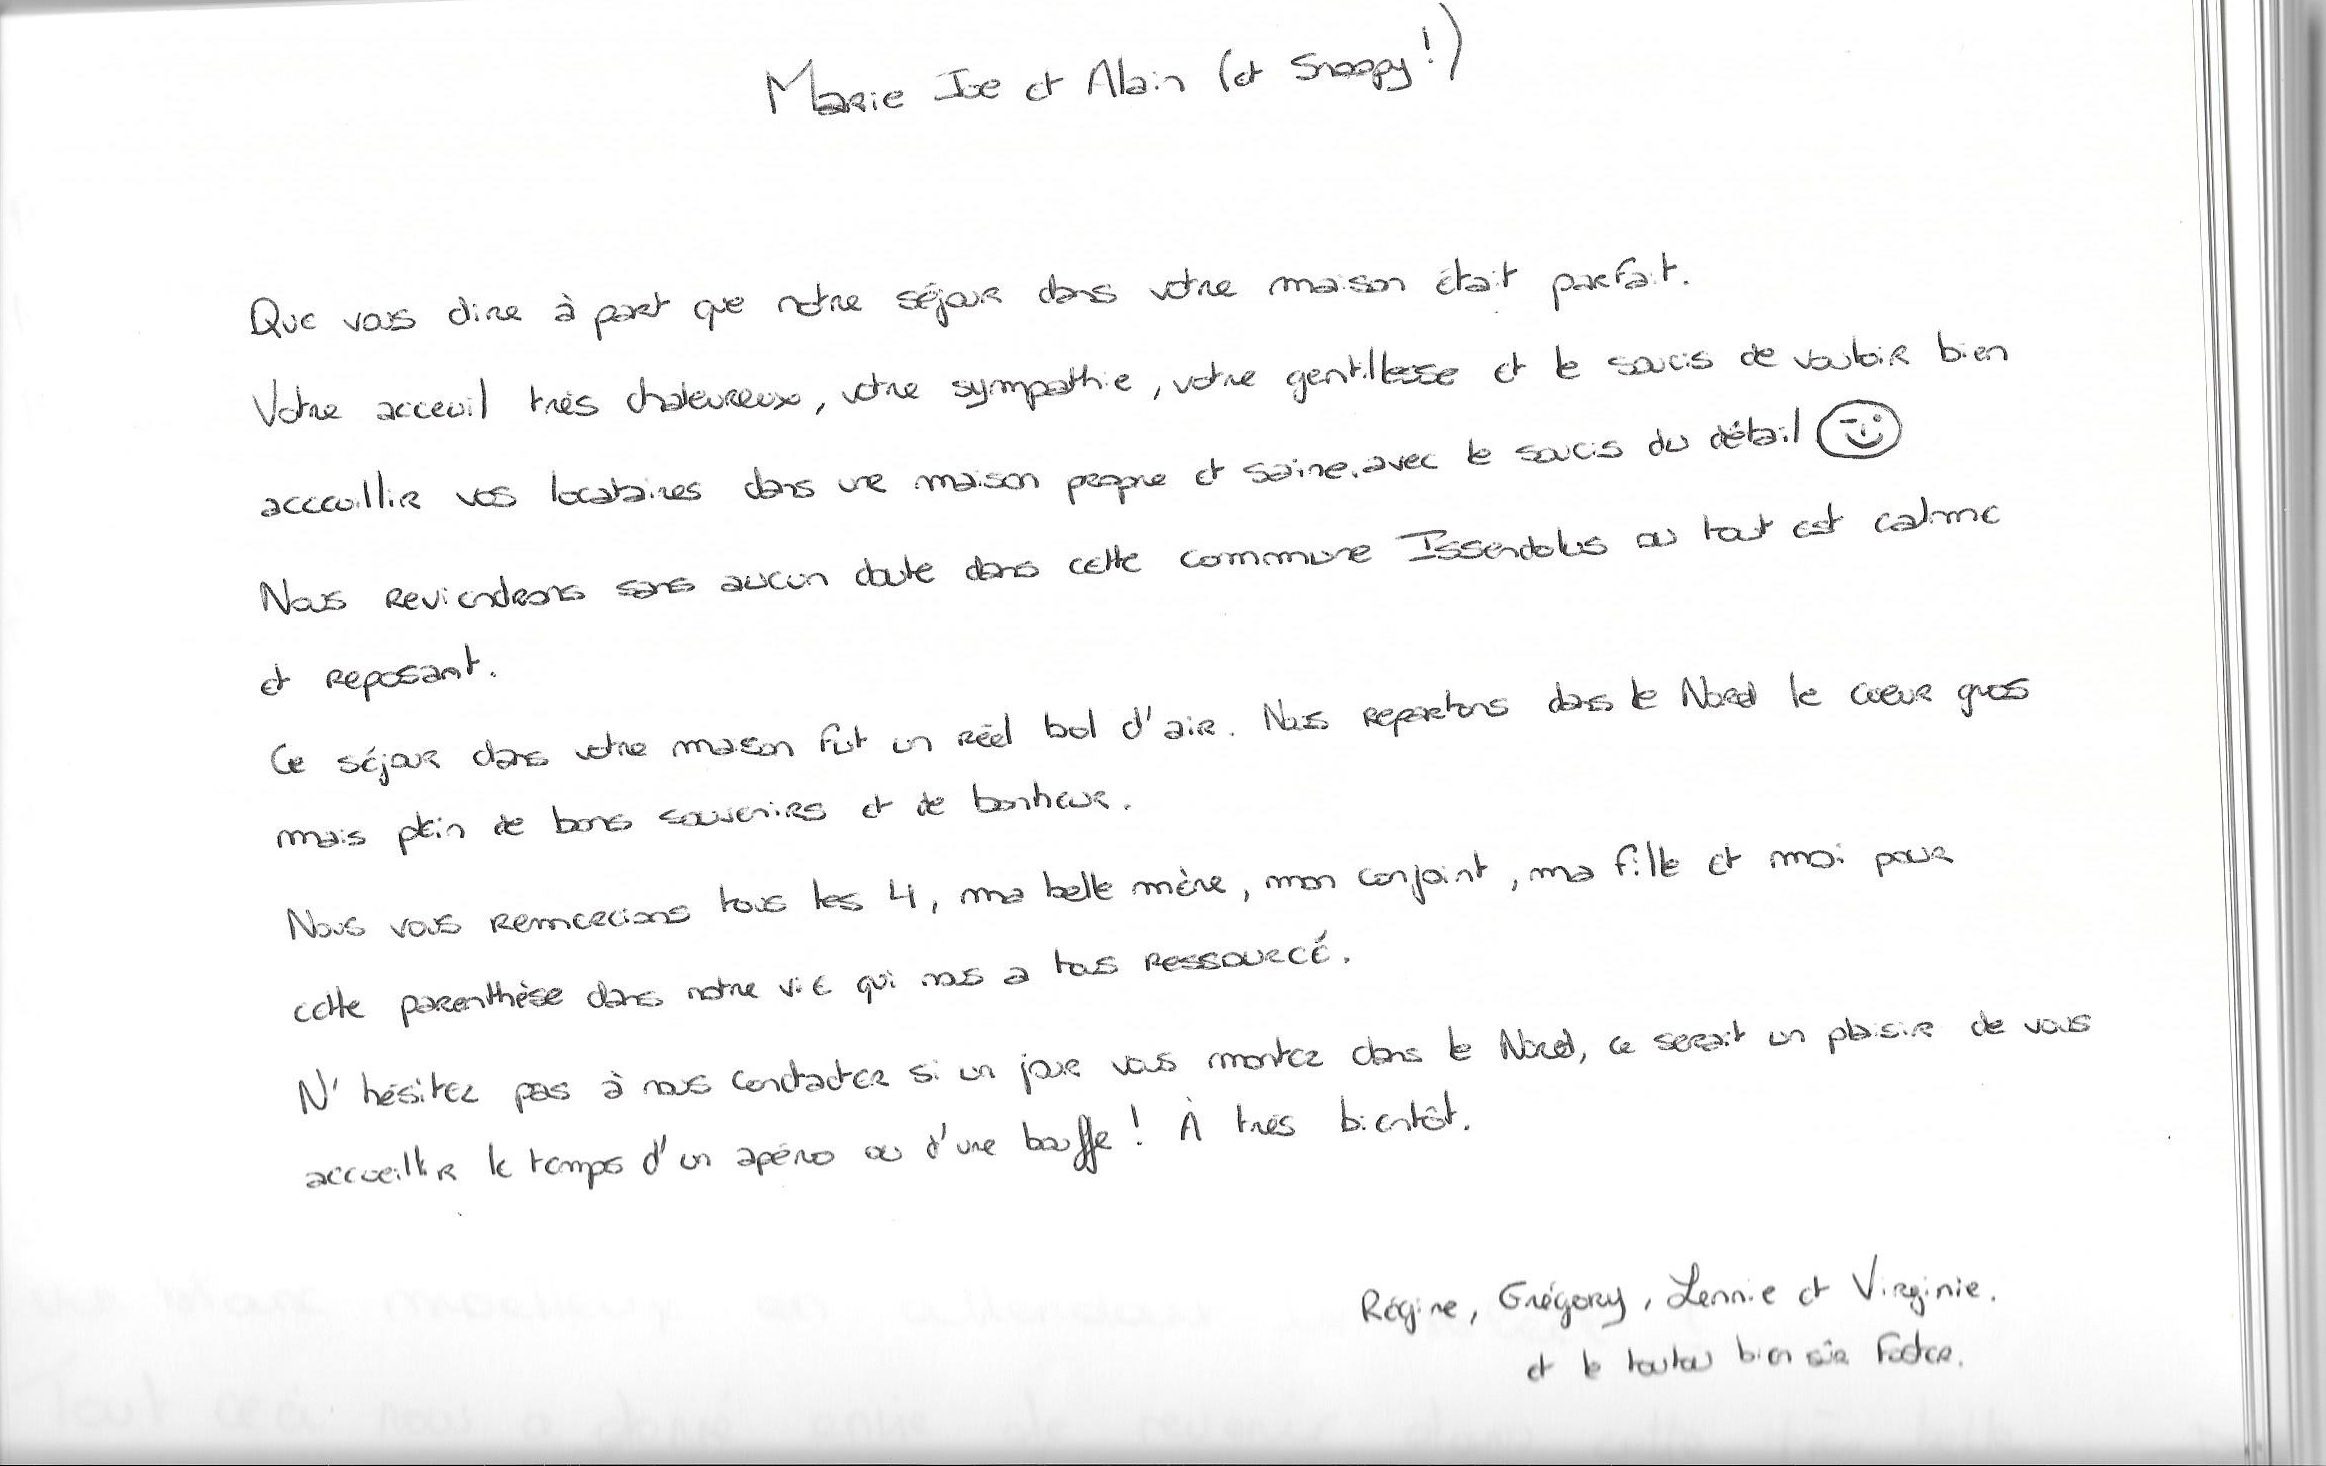 Marie Joe et Alain (et Snoopy !)
Que vous dire à part que notre séjour dans votre maison était parfait.
Votre acceuil très chaleureux, votre sympathie, votre gentillesse et le soucis de vouloir bien
acccuillir vos locataires dans une maison propre et saine. avec le soucis du détail
Nous reviendrons sans aucun doute dans cette commune Issendolus ou tout est calme
et reposant.
Ce séjour dans votre maison fut un réel bol d'air. Nous repartons dans le Nord le coeur gros
mais plein de bons souvenirs et de bonheur.
Nous vous remercions tous les 4, ma belle mère, mon conjoint, ma fille et moi pour
cette parenthèse dans notre vie qui nous a tous ressourcé.
N'hésitez pas à nous contacter si un jour vous montez dans le Nord, ce serait un plaisir de vous
accueillir le temps d'un apéro ou d'une bouffe ! À très bientôt.
Régine, Grégory, Lennie et Virginie.
et le toutou bien sûr